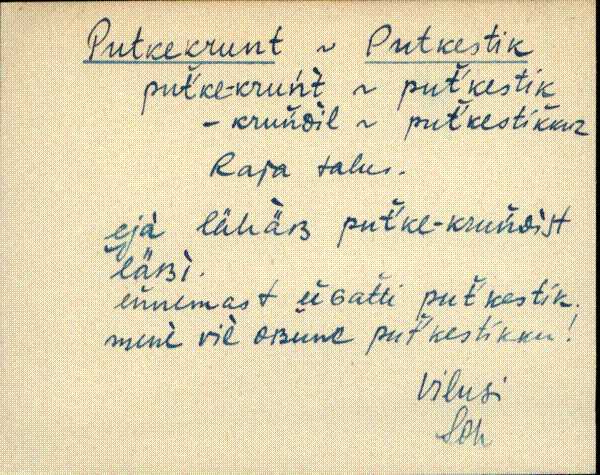 Putkekrunt ~ Putkestik
put'ke-kruńt ~ put'kestik
- kruńdil ~ put'kestikkuz
Raja talus.
ejà lähäb put'ke-kruńdist
läbì.
ennemast üGatti put'kestik.
menè
put'kestikku!
Vilusi